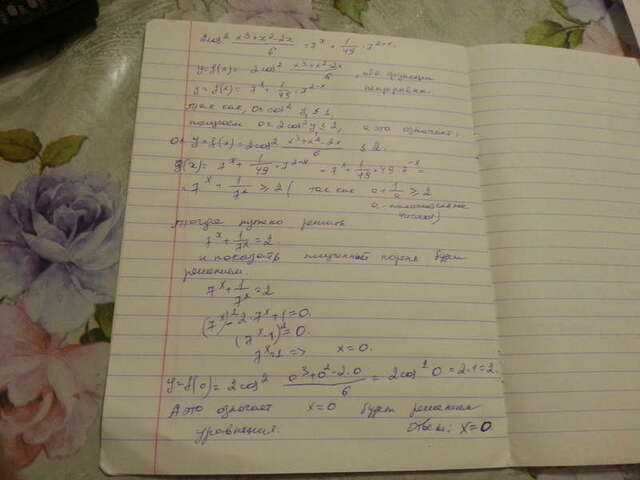 2cos² (x³+x²-2x)/6 = 7ˣ + 1/49 · 7²⁻ˣ
y=f(x)= 2cos² (x³+x²-2x)/6 , оба функции
y=g(x)= 7ˣ + 1/49 · 7²⁻ˣ непрерывны.
Так как, 0≤cos² y ≤ 1,
получаем 0≤2cos² y ≤ 2, а это означает,
0≤ y=f(x)=2cos² (x³+x²-2x)/6 ≤ 2.
g(x)= 7ˣ + 1/49 · 7²⁻ˣ = 7ˣ + 1/49 · 49 · 7⁻ˣ =
= 7ˣ + 1/7ˣ ≥ 2 ( так как a + 1/a ≥ 2
a - положительное
число)
Тогда нужно решить
7ˣ + 1/7ˣ = 2.
и показать полученный корень будет
решением.
7ˣ + 1/7ˣ = 2
(7ˣ)² - 2·7ˣ + 1 = 0.
(7ˣ-1)² = 0.
7ˣ=1 => x=0.
y=f(0)= 2cos² (0³+0²-2·0)/6 = 2cos² 0 = 2·1 = 2.
А это означает x=0 будет решением
уравнения. Ответ: x=0